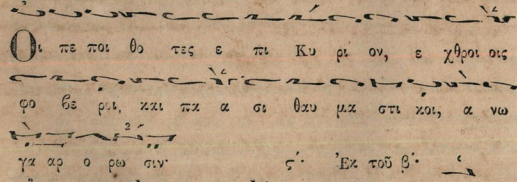 Οι πε ποι θο τες ε πι Κυ ρι ον, ε χθροι οις
φο βε ροι, και πα α σι θαυ μα στι κοι, α νω
γα αρ ο ρω σιν· ς´· Ἐκ τοῦ β´·